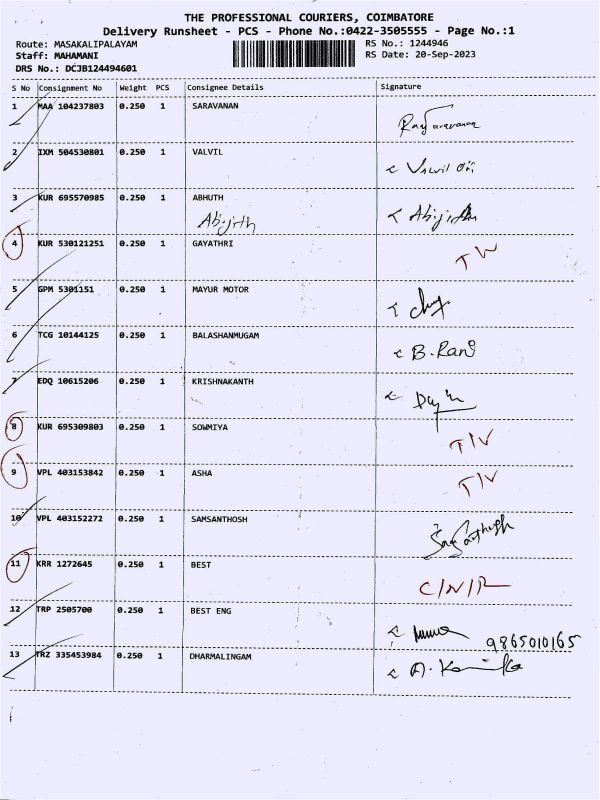 THE PROFESSIONAL COURIERS, COIMBATORE
Delivery Runsheet - PCS - Phone No.:0422-3505555 - Page No.:1
Route: MASAKALIPALAYAM RS No.: 1244946
Staff: MAHAMANI RS Date: 20-Sep-2023
DRS No.: DCJB124494601
S No Consignment No Weight PCS Consignee Details Signature
1 MAA 104237803 0.250 1 SARAVANAN
2 IXM 504530801 0.250 1 VALVIL Valvil Ori
3 KUR 695570985 0.250 1 ABHUTH
Abijith Abijith
4 KUR 530121251 0.250 1 GAYATHRI
5 GPM 5301151 0.250 1 MAYUR MOTOR
6 TCG 10144125 0.250 1 BALASHANMUGAM B.Rani
7 EDQ 10615206 0.250 1 KRISHNAKANTH
8 KUR 695309803 0.250 1 SOWMIYA T/V
9 VPL 403153842 0.250 1 ASHA T/V
10 VPL 403152272 0.250 1 SAMSANTHOSH
11 KRR 1272645 0.250 1 BEST
C/N/R
12 TRP 2505700 0.250 1 BEST ENG
9865010165
13 TRZ 335453984 0.250 1 DHARMALINGAM